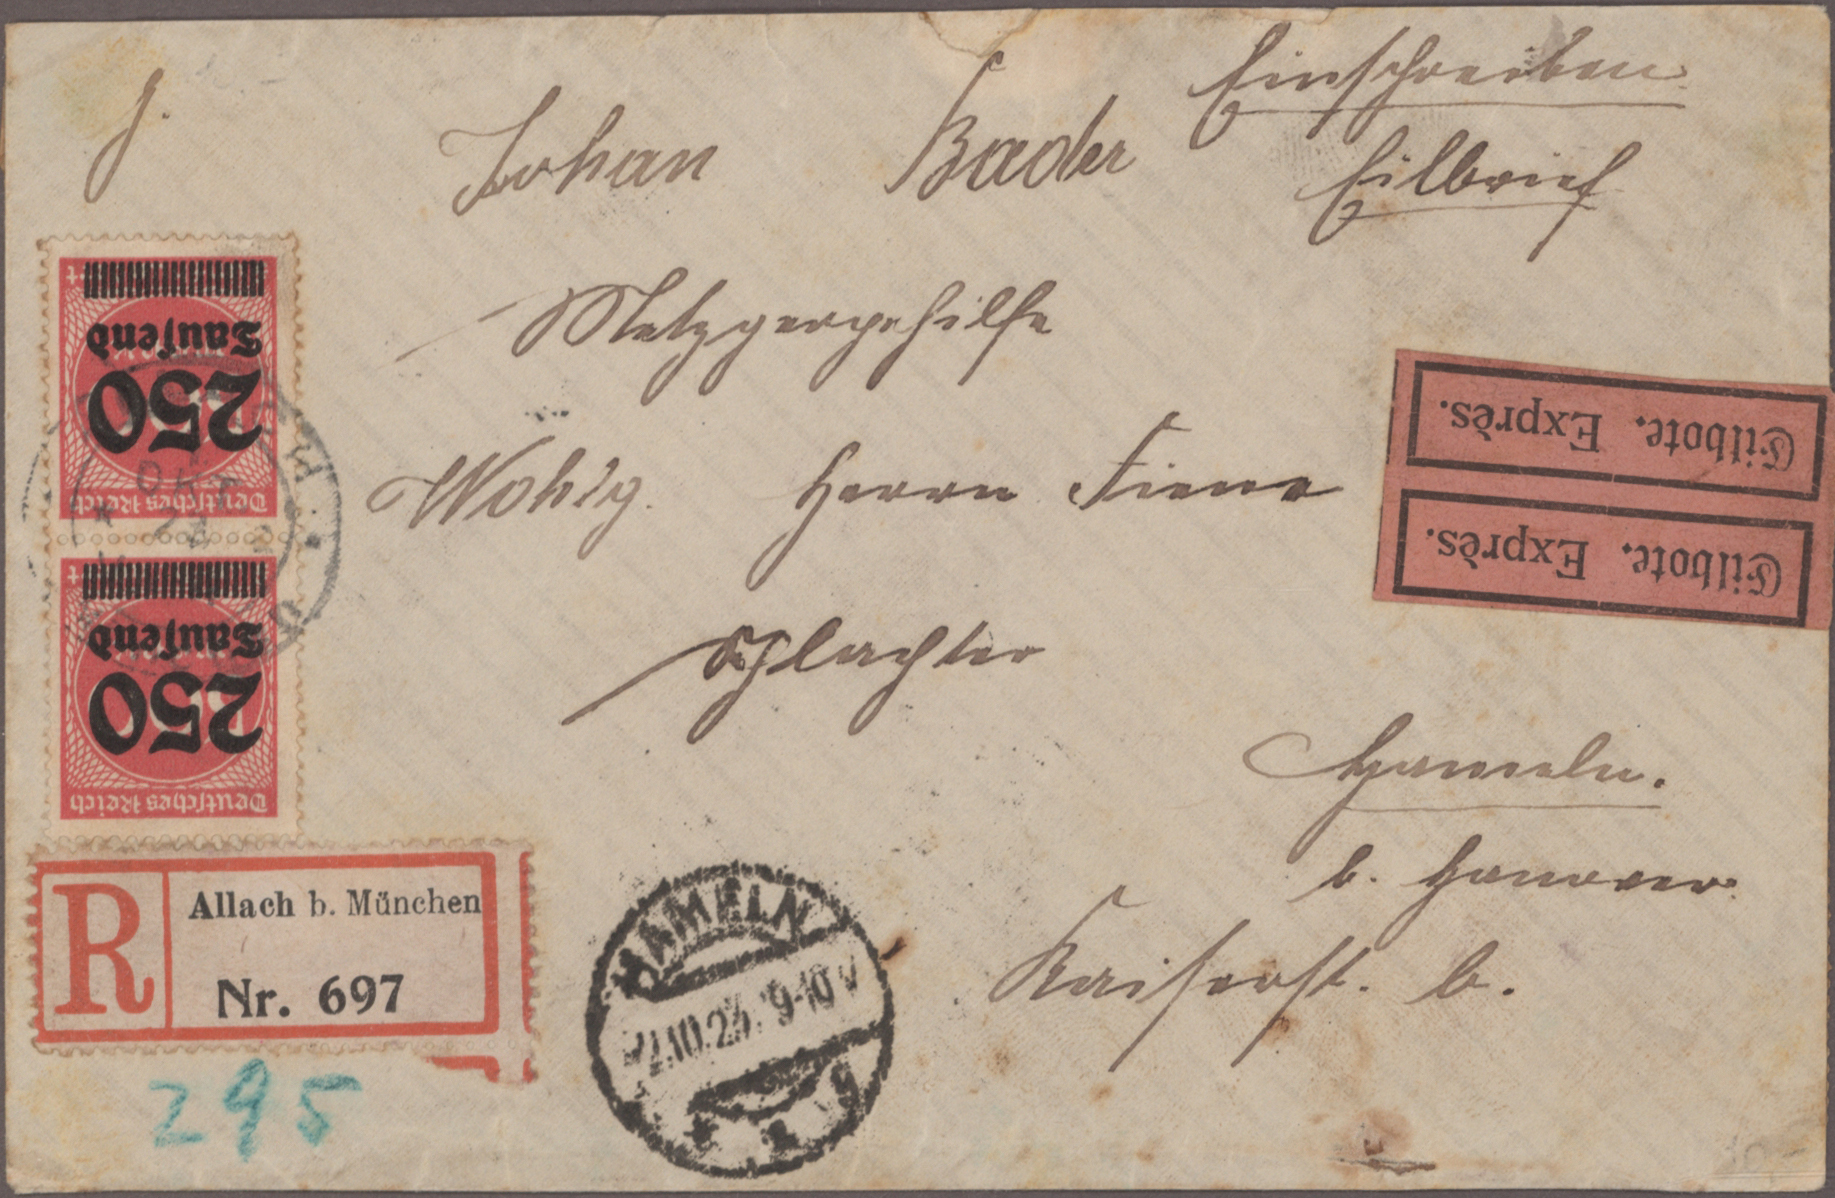 Einschreiben
J. Johan Bader
Eilbrief
Metzgergehilfe
Wohlg. Herrn Fiene
Schlachter
Hameln.
b. Hannover.
Kaiserst. 6.
250
Tausend
Deutsches Reich
250
Tausend
Deutsches Reich
Eilbote. Exprès.
Eilbote. Exprès.
R
Allach b. München
Nr. 697
295
HAMELN
10.23. 9-10 V